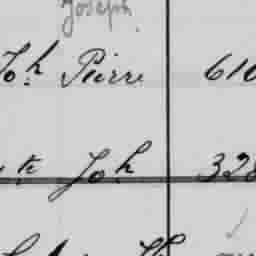 Joseph
Joh Pierre 610
te Joh 328